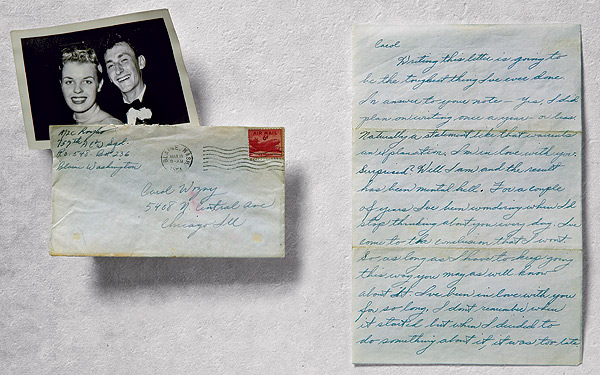 757th Sqd.
Box 232
Blaine Washington
BLAINE, WASH.
MAR
AIR MAIL
6¢
Carol Wozny
5408 N. Central Ave
Chicago Ill
Carol
Writing this letter is going to
be the toughest thing I've ever done.
In answer to your note — Yes, I did
plan on writing once a year - or less.
Naturally a statement like that warrants
an explanation. I'm in love with you.
Surprised? Well I am and the result
has been mental hell. For a couple
of years I've been wondering when I'd
stop thinking about you every day. I've
come to the conclusion that I wont.
So, as long as I have to keep going
this way you may as well know
about it. I've been in love with you
for so long, I dont remember when
it started but when I decided to
do something about it, it was too late